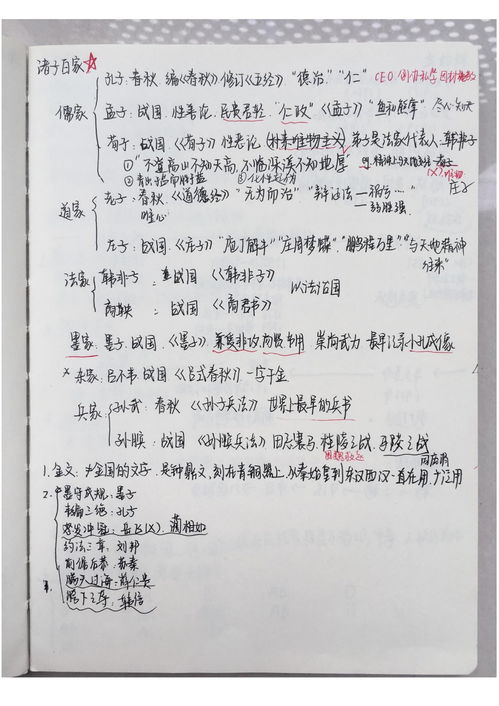 诸子百家☆
儒家
孔子:春秋 编《春秋》修订《五经》."德治.""仁" CEO 创办私学 因材施教
孟子:战国.性善论.民贵君轻."仁政"《孟子》"鱼和熊掌" 尽心知天
荀子:战国.《荀子》性恶论(朴素唯物主义)弟子是法家代表人.韩非子
①"不登高山不知天高,不临深溪不知地厚"
②青出于蓝而胜于蓝 ③化性起伪 (X)
道家
老子:春秋.《道德经》"无为而治"."辩证法—祸福……" 庄子
"唯心" —弱胜强.
庄子:战国.《庄子》"庖丁解牛""庄周梦蝶"."鹏程万里"."与天地精神
往来"
法家
韩非子:战国《韩非子》
商鞅:战国《商君书》
以法治国
墨家:墨子.战国.《墨子》.兼爱非攻,尚贤 节用 崇尚武力 最早记录小孔成像
× 杂家:吕不韦.战国《吕氏春秋》.一字千金
兵家
孙武:春秋《孙子兵法》世界上最早的兵书
孙膑:战国《孙膑兵法》田忌赛马.桂陵之战.马陵之战
围魏救赵
1.金文:为金国的文字.是种鼎文,刻在青铜器上,从秦始皇到东汉西汉一直在用.广泛用
2.墨守成规:墨子
韦编三绝:孔子
怒发冲冠:岳飞(X).蔺相如
约法三章:刘邦
前倨后恭:苏秦
瞒天过海:薛仁贵
胯下之辱:韩信